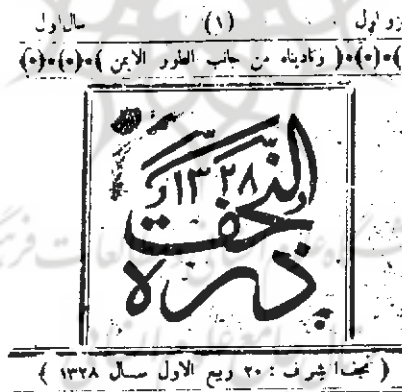 جزو اول (١) سال اول
وناديناه من جانب الطور الايمن
درة النجف
١٣٢٨
( نجف اشرف : ٢٠ ربيع الاول سال ١٣٢٨ )